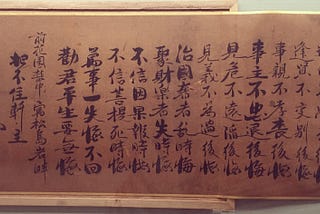 逢賓不交別後悔
事親不孝喪後悔
事主不忠退後悔
見危不遠陷後悔
見義不為過後悔
治國奢者敗時悔
聚財慳者失時悔
不信因果報時悔
不信菩提死時悔
萬事一失悔不回
勸君平生要無悔
前花園
軒主